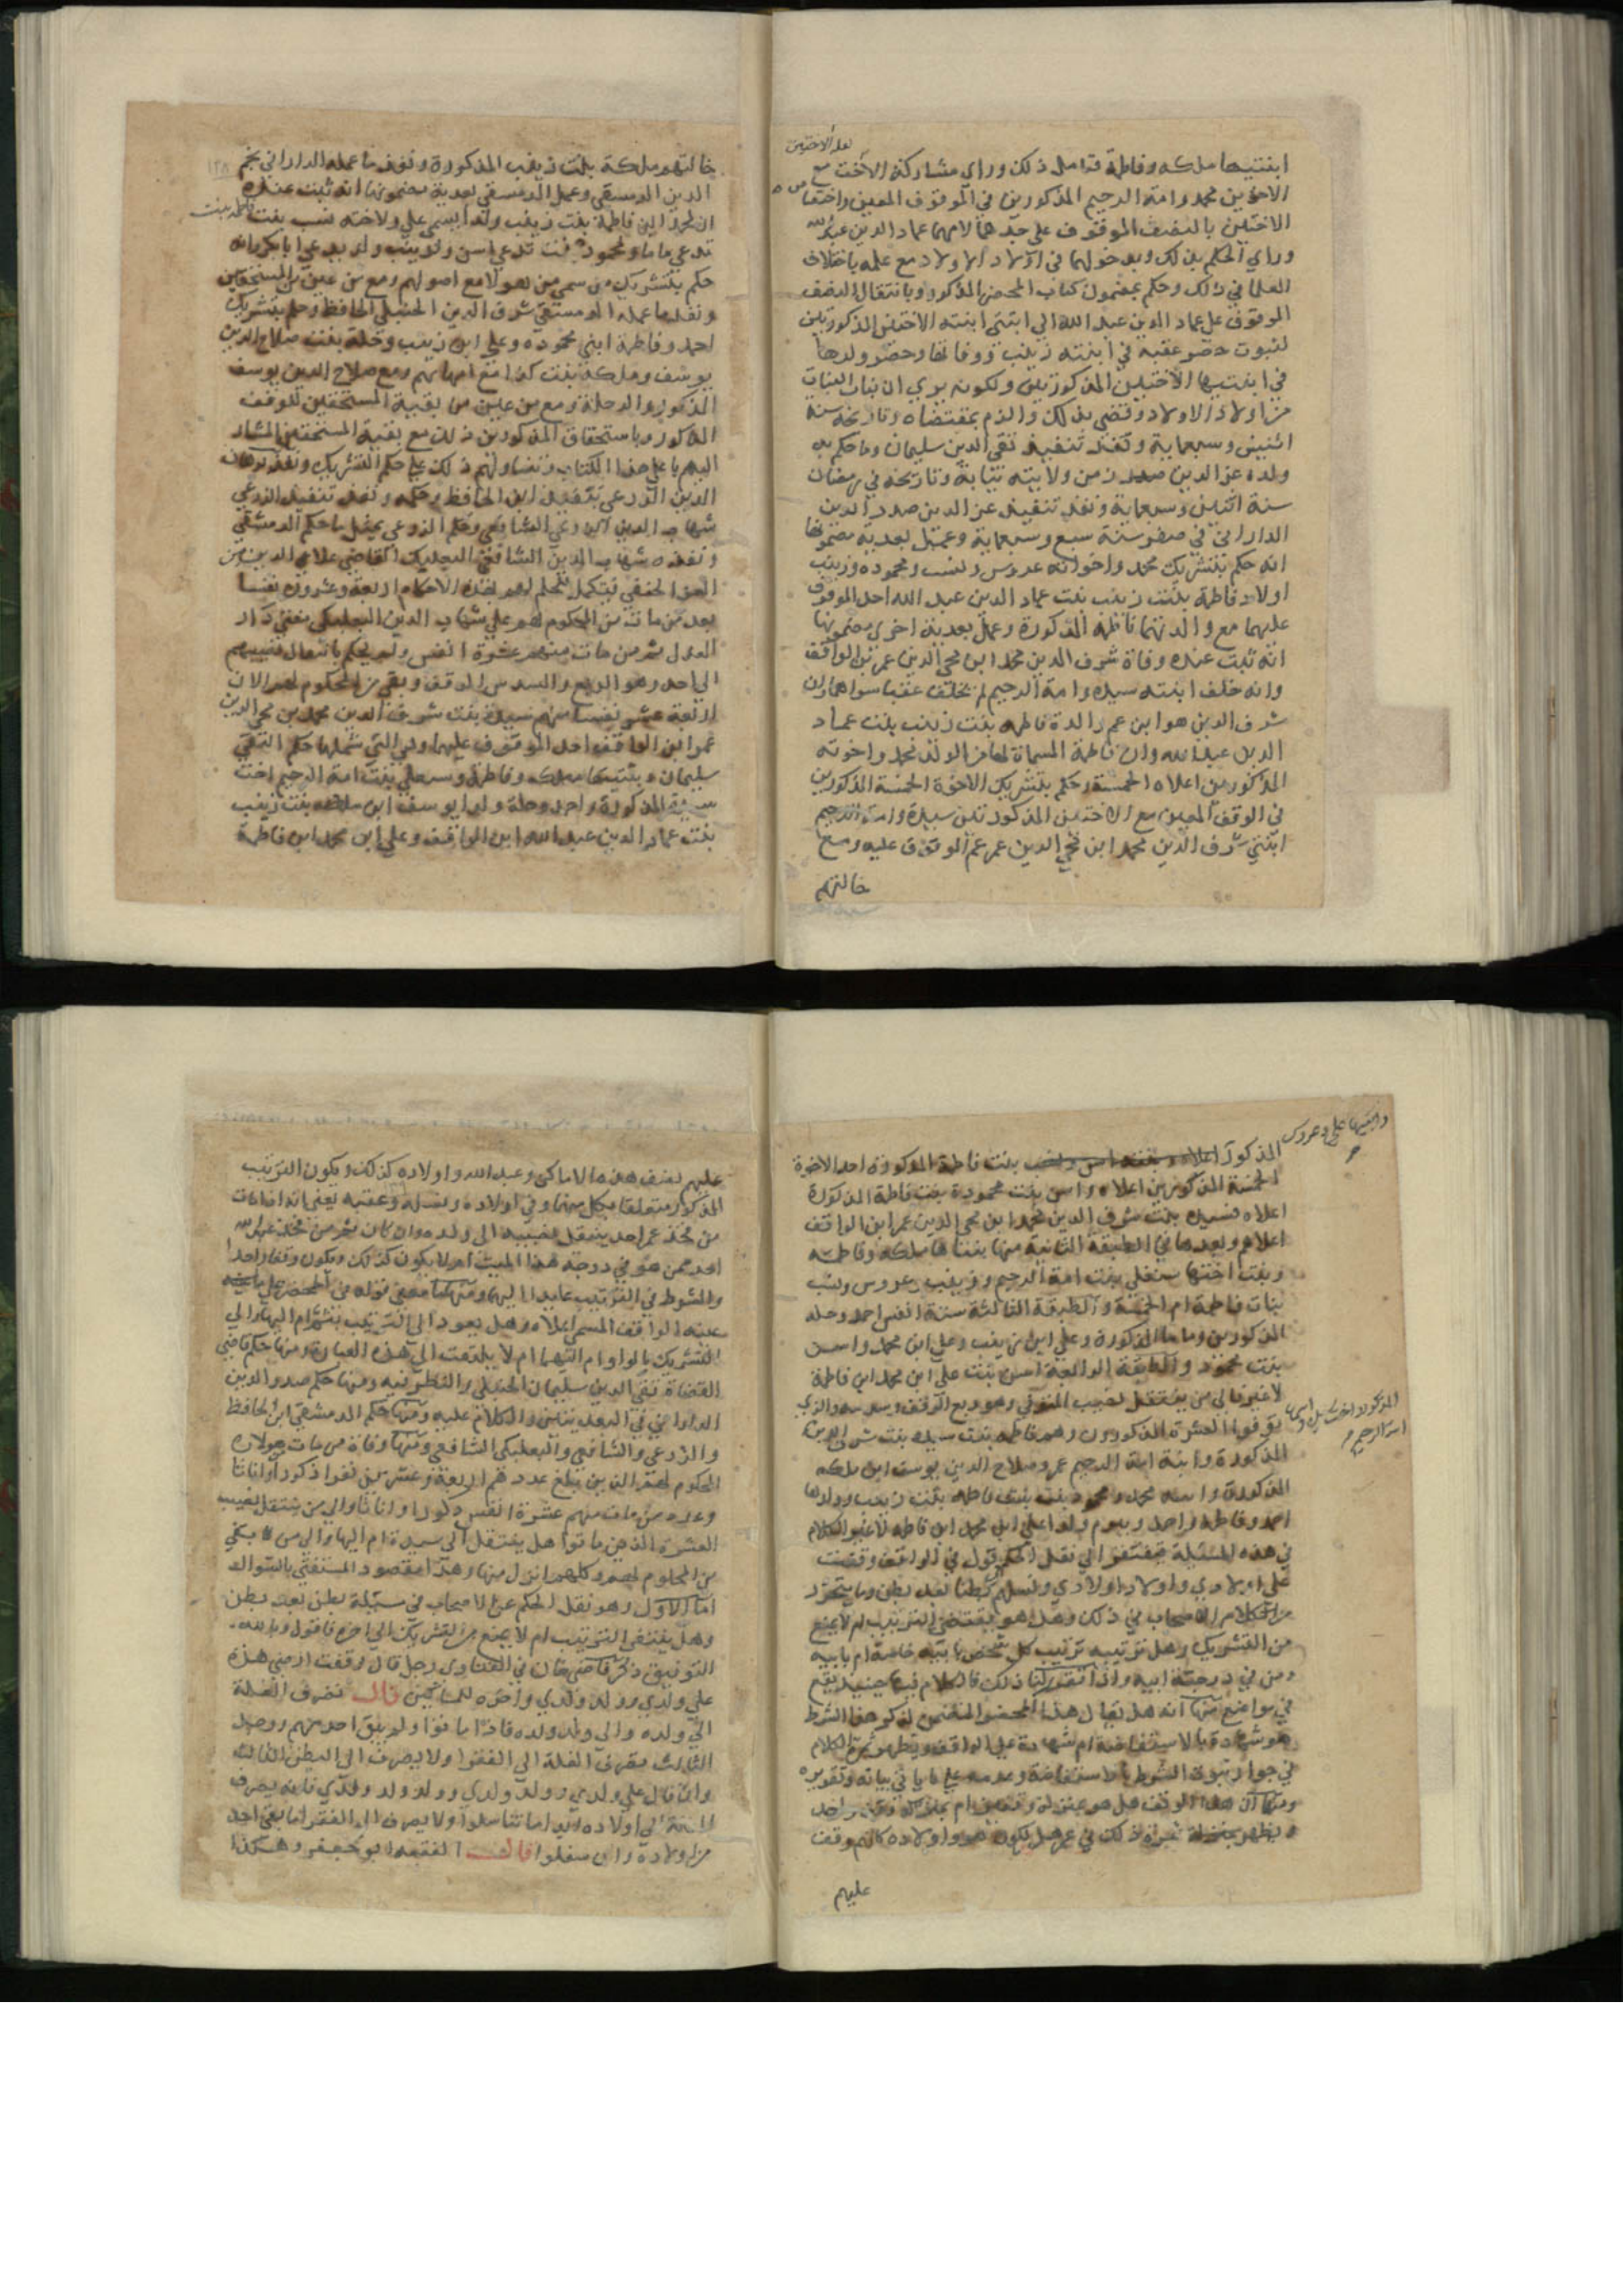 لعله الاختين
ابنتيها ملكه وفاطمة قد امل ذلك وراي مشاركة الاخت مع
الاخوين محمد وامة الرحيم المذكورين في الموقوف المعين واختصاص
الاختين بالنصف الموقوف على جدهما لامهما عماد الدين عبد الله
وراي الحكم بذلك وبدخولهما في اولاد الاولاد مع علمه باختلاف
العلما في ذلك وحكم بمضمون كتاب المحضر المذكور وبانتقال النصف
الموقوف على عماد الدين عبد الله الي ابنتي ابنته الاختين المذكورتين
لثبوت حصر عقبه في ابنته زينب ووفاتها وحصر ولدها
في ابنتيها الاختين المذكورتين ولكونه يري ان بنات البنات
من اولاد الاولاد وقضي بذلك والزم بمقتضاه وتاريخه سنة
اثنين وسبعماية ونفذ تنفيذ تقي الدين سليمان وما حكم به
ولده عز الدين صدر زمن ولايته نيابة وتاريخه في رمضان
سنة اثنين وسبعماية ونفذ تنفيذ عز الدين صدر الدين
الداراني في صفر سنة سبع وسبعماية وعمل بعدية مضمونها
انه حكم بتشريك محمد واخواته عروس ونسب ومحموده وزينب
اولاد فاطمة بنت زينب بنت عماد الدين عبد الله احد الموقوف
عليهما مع والدتهما فاطمه المذكورة وعمل بعدية اخري مضمونها
انه ثبت عنده وفاة شرف الدين محمد ابن محي الدين عمر بن الواقف
وانه خلف ابنته سيده وامة الرحيم لم يخلف عقبا سواهما وان
شرف الدين هو ابن عم والدة فاطمه بنت زينب بنت عماد
الدين عبد الله وان فاطمة المسماة لها من الولد محمد واخوته
المذكورين اعلاه الخمسة وحكم بتشريك الاخوة الخمسة المذكورين
في الوقف المعين مع الاختين المذكورتين سيدة وامة الرحيم
ابنتي شرف الدين محمد ابن محي الدين عمر عم الموقوف عليه ومع
خالتهم
خالتهم ملكة بنت زينب المذكورة ونفذ ما عمله الداراني نجم
الدين الدمسقي وعمل الدمسقي بعدية مضمونها انه ثبت عنده
ان لمحمد ابن فاطمة بنت زينب ولدا يسمي علي ولاخته نسب بنت
تدعي ماما ولمحمودة بنت تدعي اسن ولزينب ولد يدعي ابا بكر وانه
حكم بتشريك من سمي من هولا مع اصولهم ومع من عين من المستحقين
ونفذ ما عمله الدمسقي شرف الدين الحنبلي الحافظ وحكم بتشريك
احمد وفاطمة ابني محموده وعلي ابن زينب وحلة بنت صلاح الدين
يوسف وملكة بنت كذا مع امهاتهم ومع صلاح الدين يوسف
المذكور والد حلة ومع من عين من بقية المستحقين للوقف
المذكور وباستحقاق المذكورين ذلك مع بقية المستحقين المشار
اليهم باعلي هذا الكتاب وتساويهم ذلك علي حكم التشريك ونفذ برهان
الدين الزرعي تنفيذ ابن الحافظ وحكمه ونفذ تنفيذ الزرعي
شهاب الدين الزرعي الشافعي وحكم الزرعي بمثل ما حكم الدمشقي
ونفذه شهاب الدين الشافعي البعلبكي القاضي علاي الدين بن
العز الحنفي فتكمل بحكم هذه الاحكام اربعة وعشرون نفسا
بعد من مات من المحكوم لهم علي شهاب الدين البعلبكي مفتي دار
العدل ثم من مات منهم عشرة انفس ولم يحكم بانتقال نصيبهم
الي احد وهو الربع والسدس الوقف وبقي من المحكوم لهم الان
اربعة عشر نفسا منهم سيدة بنت شرف الدين محمد بن محي الدين
عمر ابن الواقف احد الموقوف عليهما وهي التي شملها حكم التقي
سليمان وبنتيها ملكه وفاطمة وستعلي بنت امة الرحيم اخت
سيدة المذكورة واحمد وحلة ولدا يوسف ابن ملكه بنت زينب
بنت عماد الدين عبد الله ابن الواقف وعلي ابن محمد ابن فاطمة
وابنتيها علي وعروس
المذكور اعلاه بنت فاطمة المذكورة احد الاخوة
الخمسة المذكورين اعلاه واسن بنت محمودة بنت فاطمة المذكورة
اعلاه فسيده بنت شرف الدين محمد ابن محي الدين عمر ابن الواقف
اعلاهم وبعدها في الطبقة الثانية منها بنتاها ملكه وفاطمه
وبنت اختها ستعلي بنت امة الرحيم وزينب وعروس ونسب
بنات فاطمة ام الخمسة والطبقة الثالثة ستة انفس احمد وحله
المذكورين وماما المذكورة وعلي ابن زينب وعلي ابن محمد واسن
بنت محموده والطبقة الرابعة اسن بنت علي ابن محمد ابن فاطمة
لا غير فالي من ينتقل نصيب المتوفي وهو ربع الوقف وسدسه والذي
توفوا العشرة المذكورون وهم فاطمه بنت سيده بنت شرف الدين
المذكور اخت سيده واسمها امة الرحيم
المذكورة وابنة امة الرحيم عمر وصلاح الدين يوسف ابن ملكه
المذكورة وابنه محمد ومحموده بنت فاطمه بنت زينب وولدها
احمد وفاطمه واحمد ومريم ولدا علي ابن محمد ابن فاطمه لا غير الكلام
في هذه المسئلة يفتقر الي نقل الحكم في قول الواقف وقفت
علي اولادي واولاد اولادي ونسلهم بطنا بعد بطن وما يتحرر
من كلام الاصحاب في ذلك وهل هو يقتضي الترتيب ام لا يمنع
من التشريك وهل ترتيبه ترتيب كل شخص بابيه خاصة ام بابيه
ومن في درجة ابيه واذا تقرر لنا ذلك فالكلام فيها حينيذ يقع
في مواضع منها انه هل يقال هذا المحضر المتضمن لذكر هذا الشرط
هو شهادة بالاستفاضة ام شهادة علي الواقف ويظهر ثمرة الكلام
في جواز ثبوت الشروط بالاستفاضة وعدمه علي ما ياتي بيانه وتقريره
ومنها ان هذا الوقف هل هو بمنزلة وقفين ام بمنزلة وقف واحد
ويظهر ثمرة ذلك في عمر هل يكون هو واولاده كانهم وقف
عليهم
عليهم نصف هذه الاماكن وعبد الله واولاده كذلك ويكون الترتيب
المذكور متعلقا بكل منهما وفي اولاده ونسله وعقبه يعني انه اذا مات
من فخذ عمر احد ينتقل نصيبه الي ولده وان كان ثم من فخذ عبد الله
احد ممن هو في درجة هذا الميت ام لا يكون كذلك ويكون وقفا واحدا
والشرط في الترتيب عايدا اليهما ومنها معني قوله في المحضر علي ما
عينه الواقف المسمي اعلاه وهل يعود الي الترتيب بثم ام اليها والي
التشريك بالواو ام اليهما ام لا يلتفت الي هذه العبارة ومنها حكم قاضي
القضاة تقي الدين سليمان الحنبلي والنظر فيه ومنها حكم صدر الدين
الداراني في البعديتين والكلام عليه ومنها حكم الدمشقي ابن الحافظ
والزرعي والشافعي والبعلبكي الشافعي ومنها وفاة من مات من هولاء
المحكوم لهم الذين بلغ عددهم اربعة وعشرين نفرا ذكورا واناثا
وعده من مات منهم عشرة انفس ذكورا واناثا والي من ينتقل نصيب
العشرة الذين ماتوا هل ينتقل الي سيدة ام اليها والي من بقي
من المحكوم لهم وكلهم انزل منها وهذا مقصود المستفتي بالسوال
اما الاول وهو نقل الحكم عن الاصحاب في مسئلة بطن بعد بطن
وهل يقتضي الترتيب ام لا يمنع من التشريك الي اخره فاقول وبالله
التوفيق ذكر قاضي خان في الفتاوي رجل قال وقفت ارضي هذه
علي ولدي وولد ولدي واخره للمساكين قال تصرف الغلة
الي ولده والي ولد ولده فاذا ماتوا ولم يبق احد منهم ووجد
الثالث تصرف الغلة الي الفقرا ولا يصرف الي البطن الثالث
وان قال علي ولدي وولد ولدي وولد ولد ولدي فانه يصرف
الغلة الي اولاده ابدا ما تناسلوا ولا يصرف الي الفقرا ما بقي احد
من اولاده وان سفلوا قال الفقيه ابو جعفر وهكذا